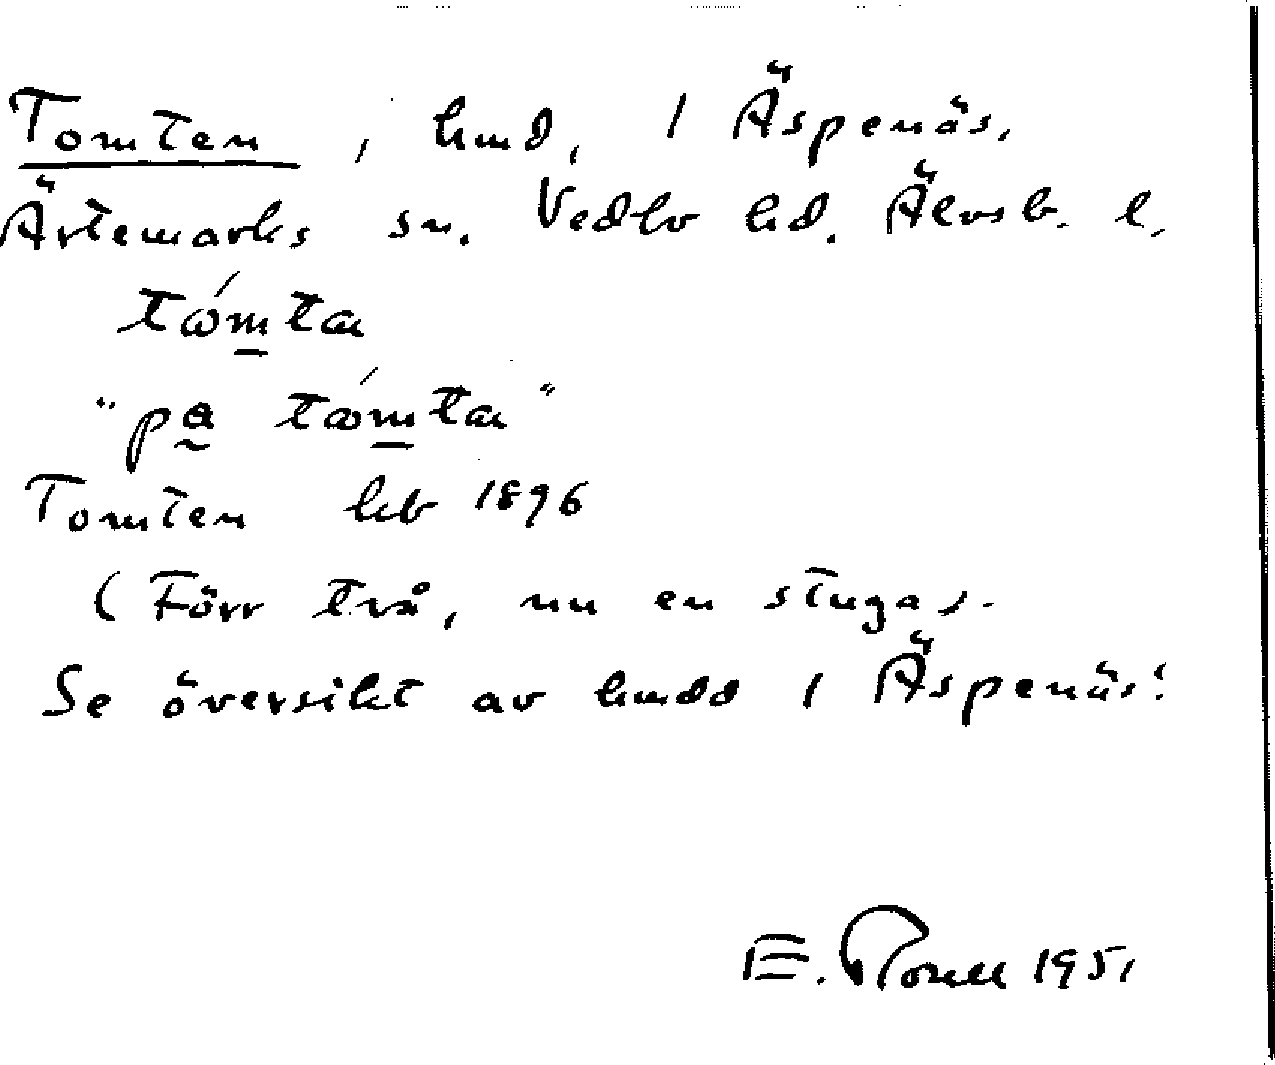 Tomten, hmd, i Äspenäs,
Ärtemarks sn. Vedbo hd. Älvsb. l.
tómta
"pa tómta"
Tomten hb 1896
(Förr två, nu en stuga).
Se översikt av hmdd i Äspenäs!
E. 1951